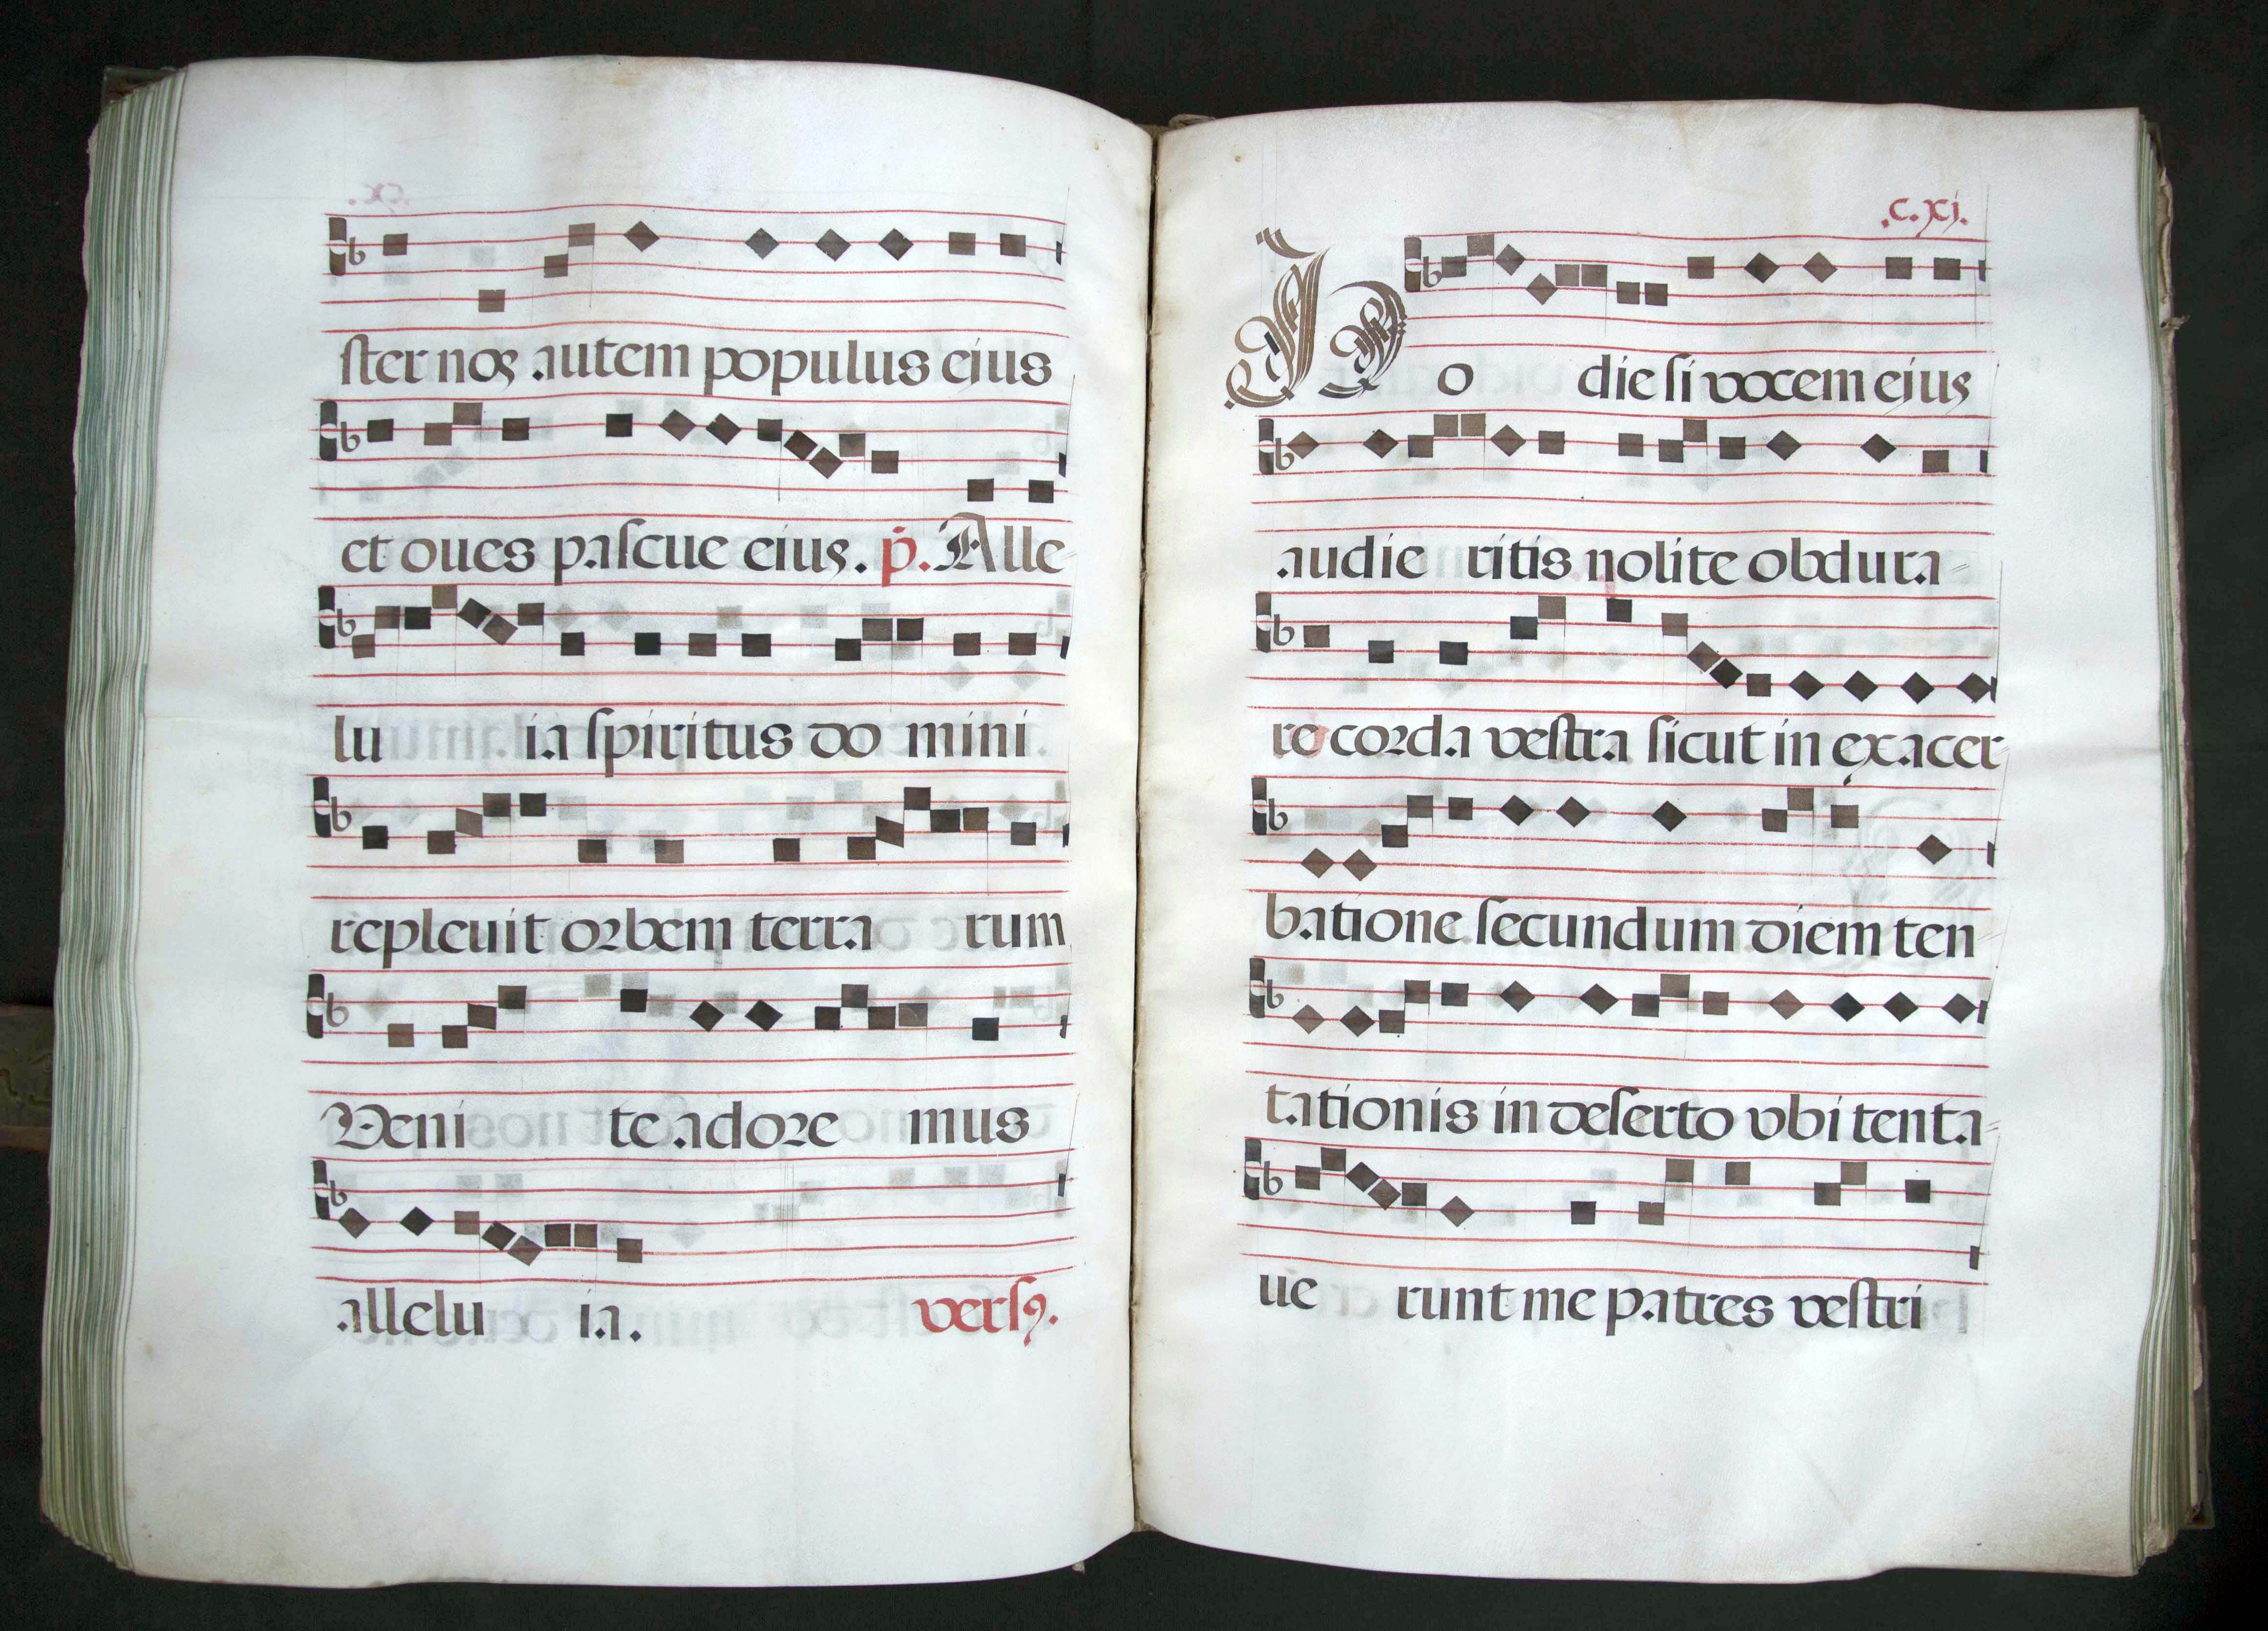 ster nos autem populus eius
et oues pascue eius. p̃. Alle
lu ia spiritus do mini
repleuit orbem terra rum
Veni te adore mus
allelu ia. versꝯ.
.c.xj.
Ho die si vocem ejus
audie ritis nolite obdura=
re corda vestra sicut in exacer
batione secundum diem ten=
tationis in deserto vbi tenta=
ue runt me patres vestri